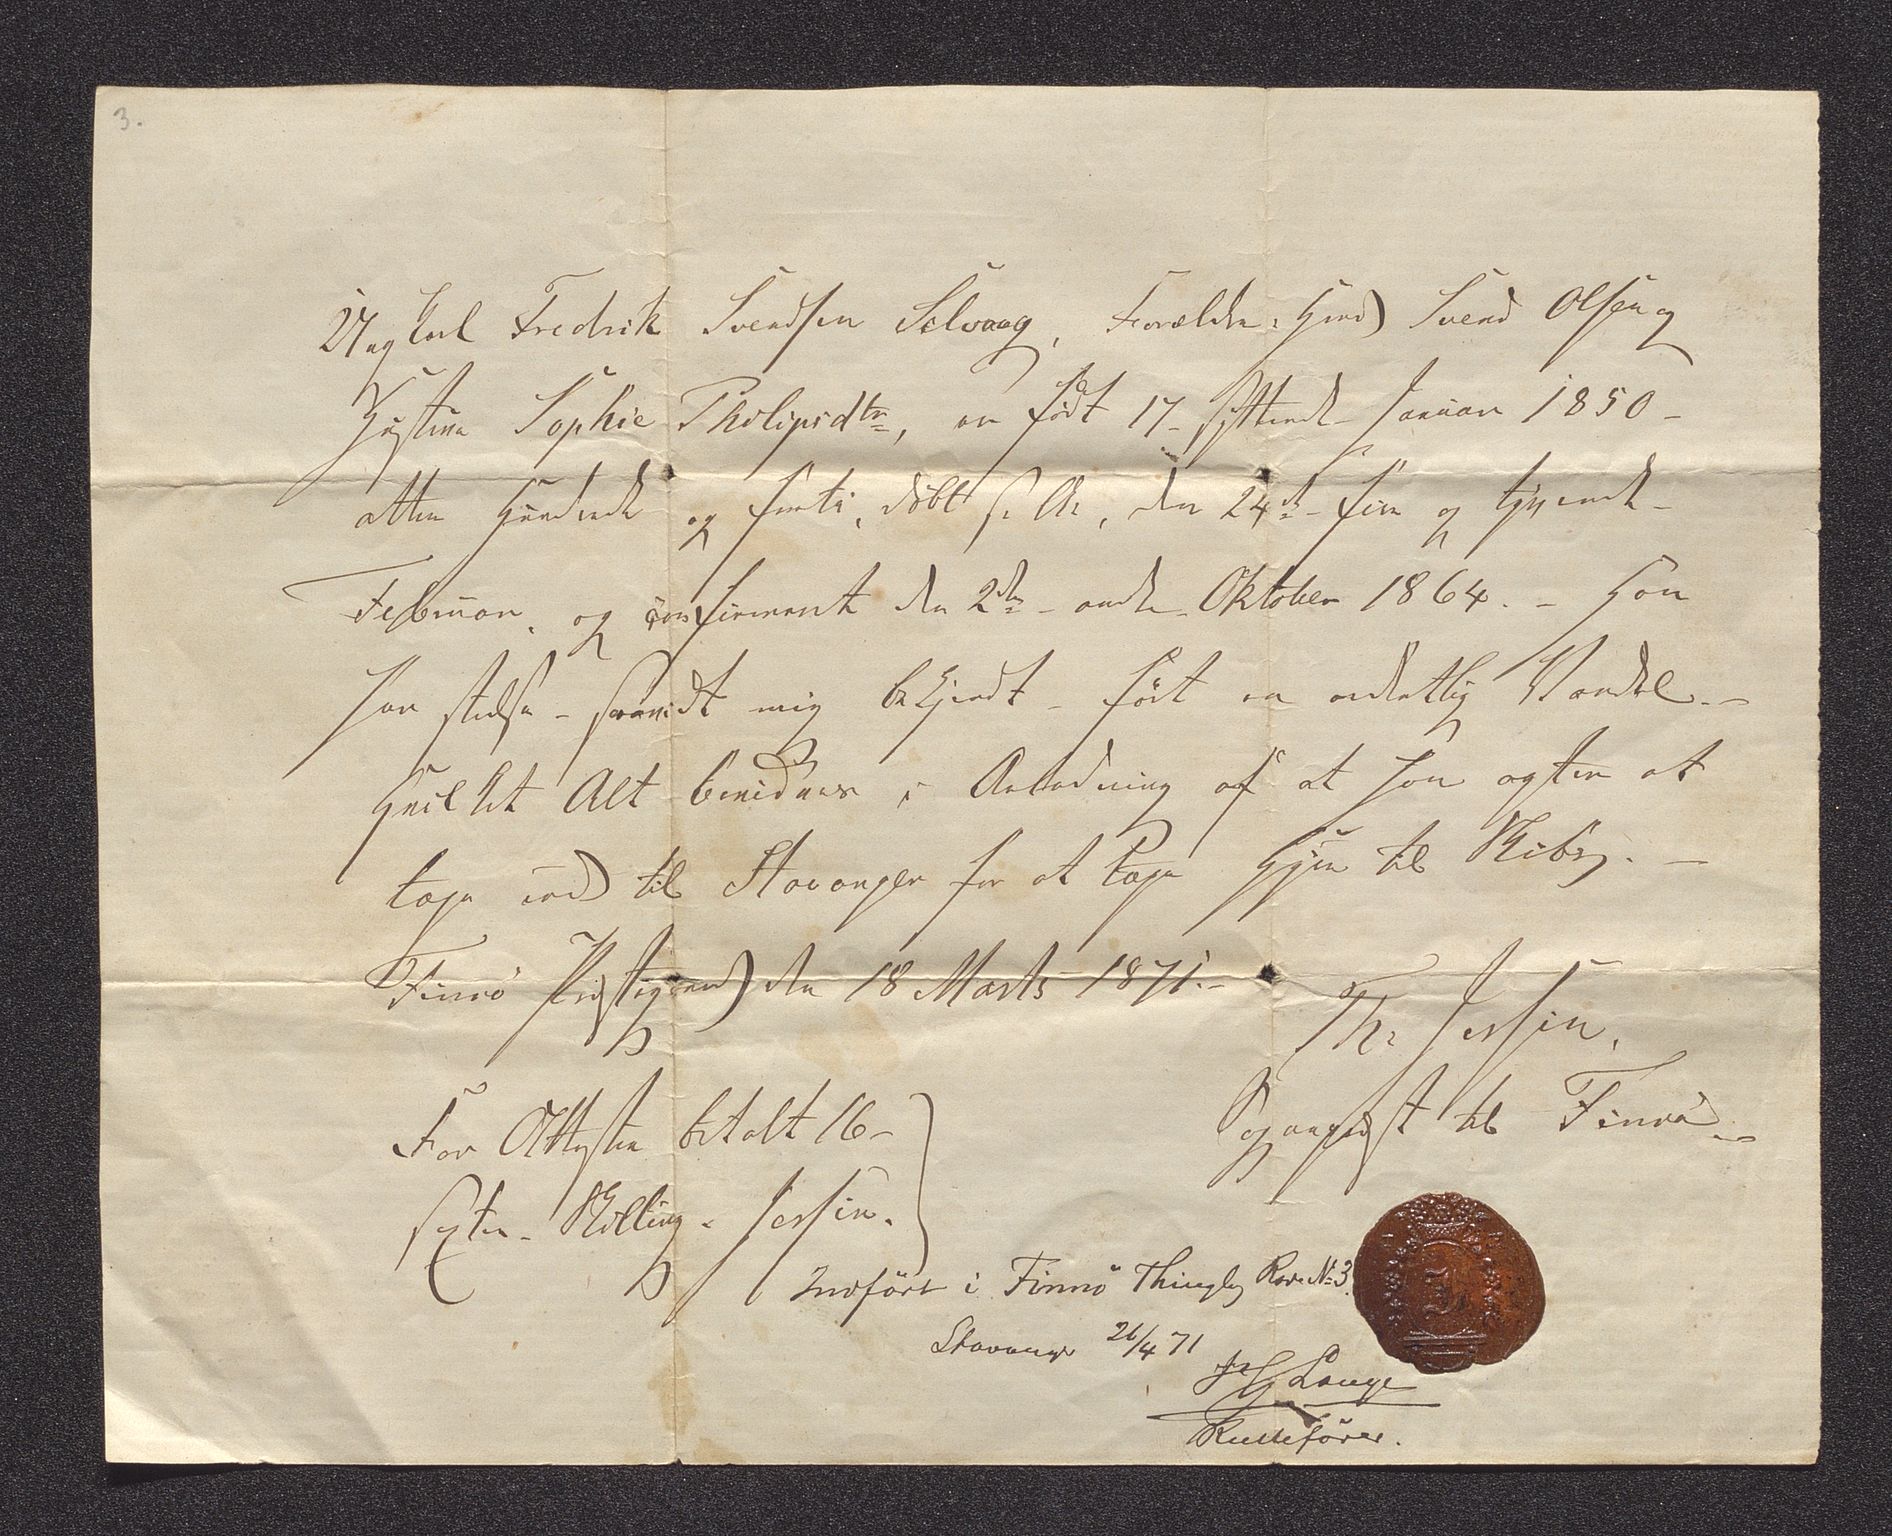 3.
Ungkarl Fredrik Svendsen Selvaag, Forældre: Gmd Svend Olsen og
Gustava Sophie Philipsdtr, er født 17 – syttende – Januar 1850 –
atten Hundrede og femti, døbt s. A., den 24de – fire og tyvende –
Februar, og confirmeret den 2den – anden – Oktober 1864. – Han
har stedse – saavidt mig bekjendt – ført en ordentlig Vandel. –
Hvilket Alt bevidnes i Anledning af at han agter at
tage ind til Stavanger for at tage Hyre til Skibs. –
Finnø Præstegaard den 18 Marts 1871. –
Th. Jessen,
Sogneprest til Finnø –
For Attesten betalt 16 –
sexten – Skilling. Jessen.
Indført i Finnø Thinglag Rode No 3.
Stavanger 26/4 71
Lange
Rulleförer.